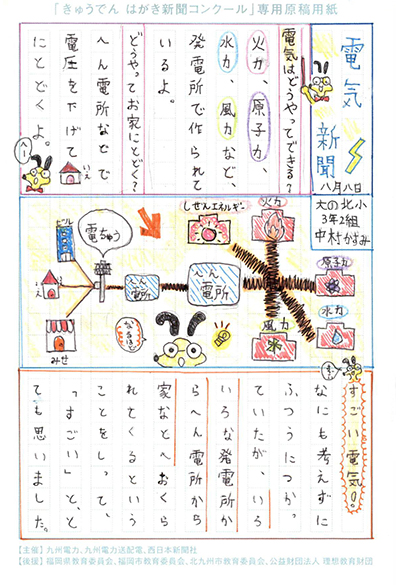 「きゅうでん はがき新聞コンクール」専用原稿用紙
電気新聞
八月八日
大の北小
3年2組
中村かすみ
電気はどうやってできる？
火力、原子力、
水力、風力など、
発電所で作られて
いるよ。
どうやってお家にとどく？
へん電所などで
電圧を下げて
にとどくよ。
いえ
へー
しぜんエネルギー
火力
原子力
水力
風力
へん電所
へん電所
電ちゅう
ビル
いえ
みせ
なるほど
すごい電気！
なにも考えずに
ふつうにつかっ
ていたが、いろ
いろな発電所か
らへん電所から
家などへおくら
れてくるという
ことをしって、
「すごい」と、と
ても思いました。
【主催】九州電力、九州電力送配電、西日本新聞社
【後援】福岡県教育委員会、福岡市教育委員会、北九州市教育委員会、公益財団法人 理想教育財団